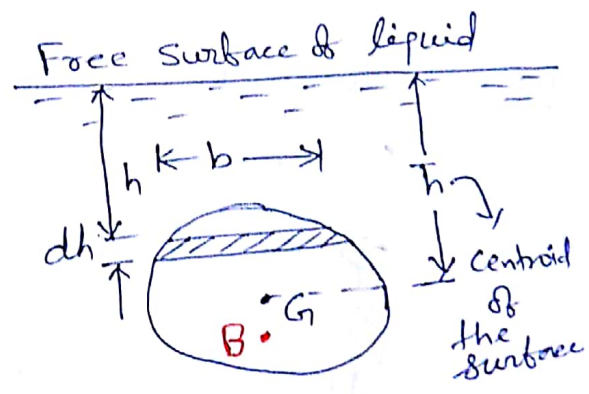 Free surface of liquid
b
h
h̄
dh
G
B
Centroid
of
the
surface